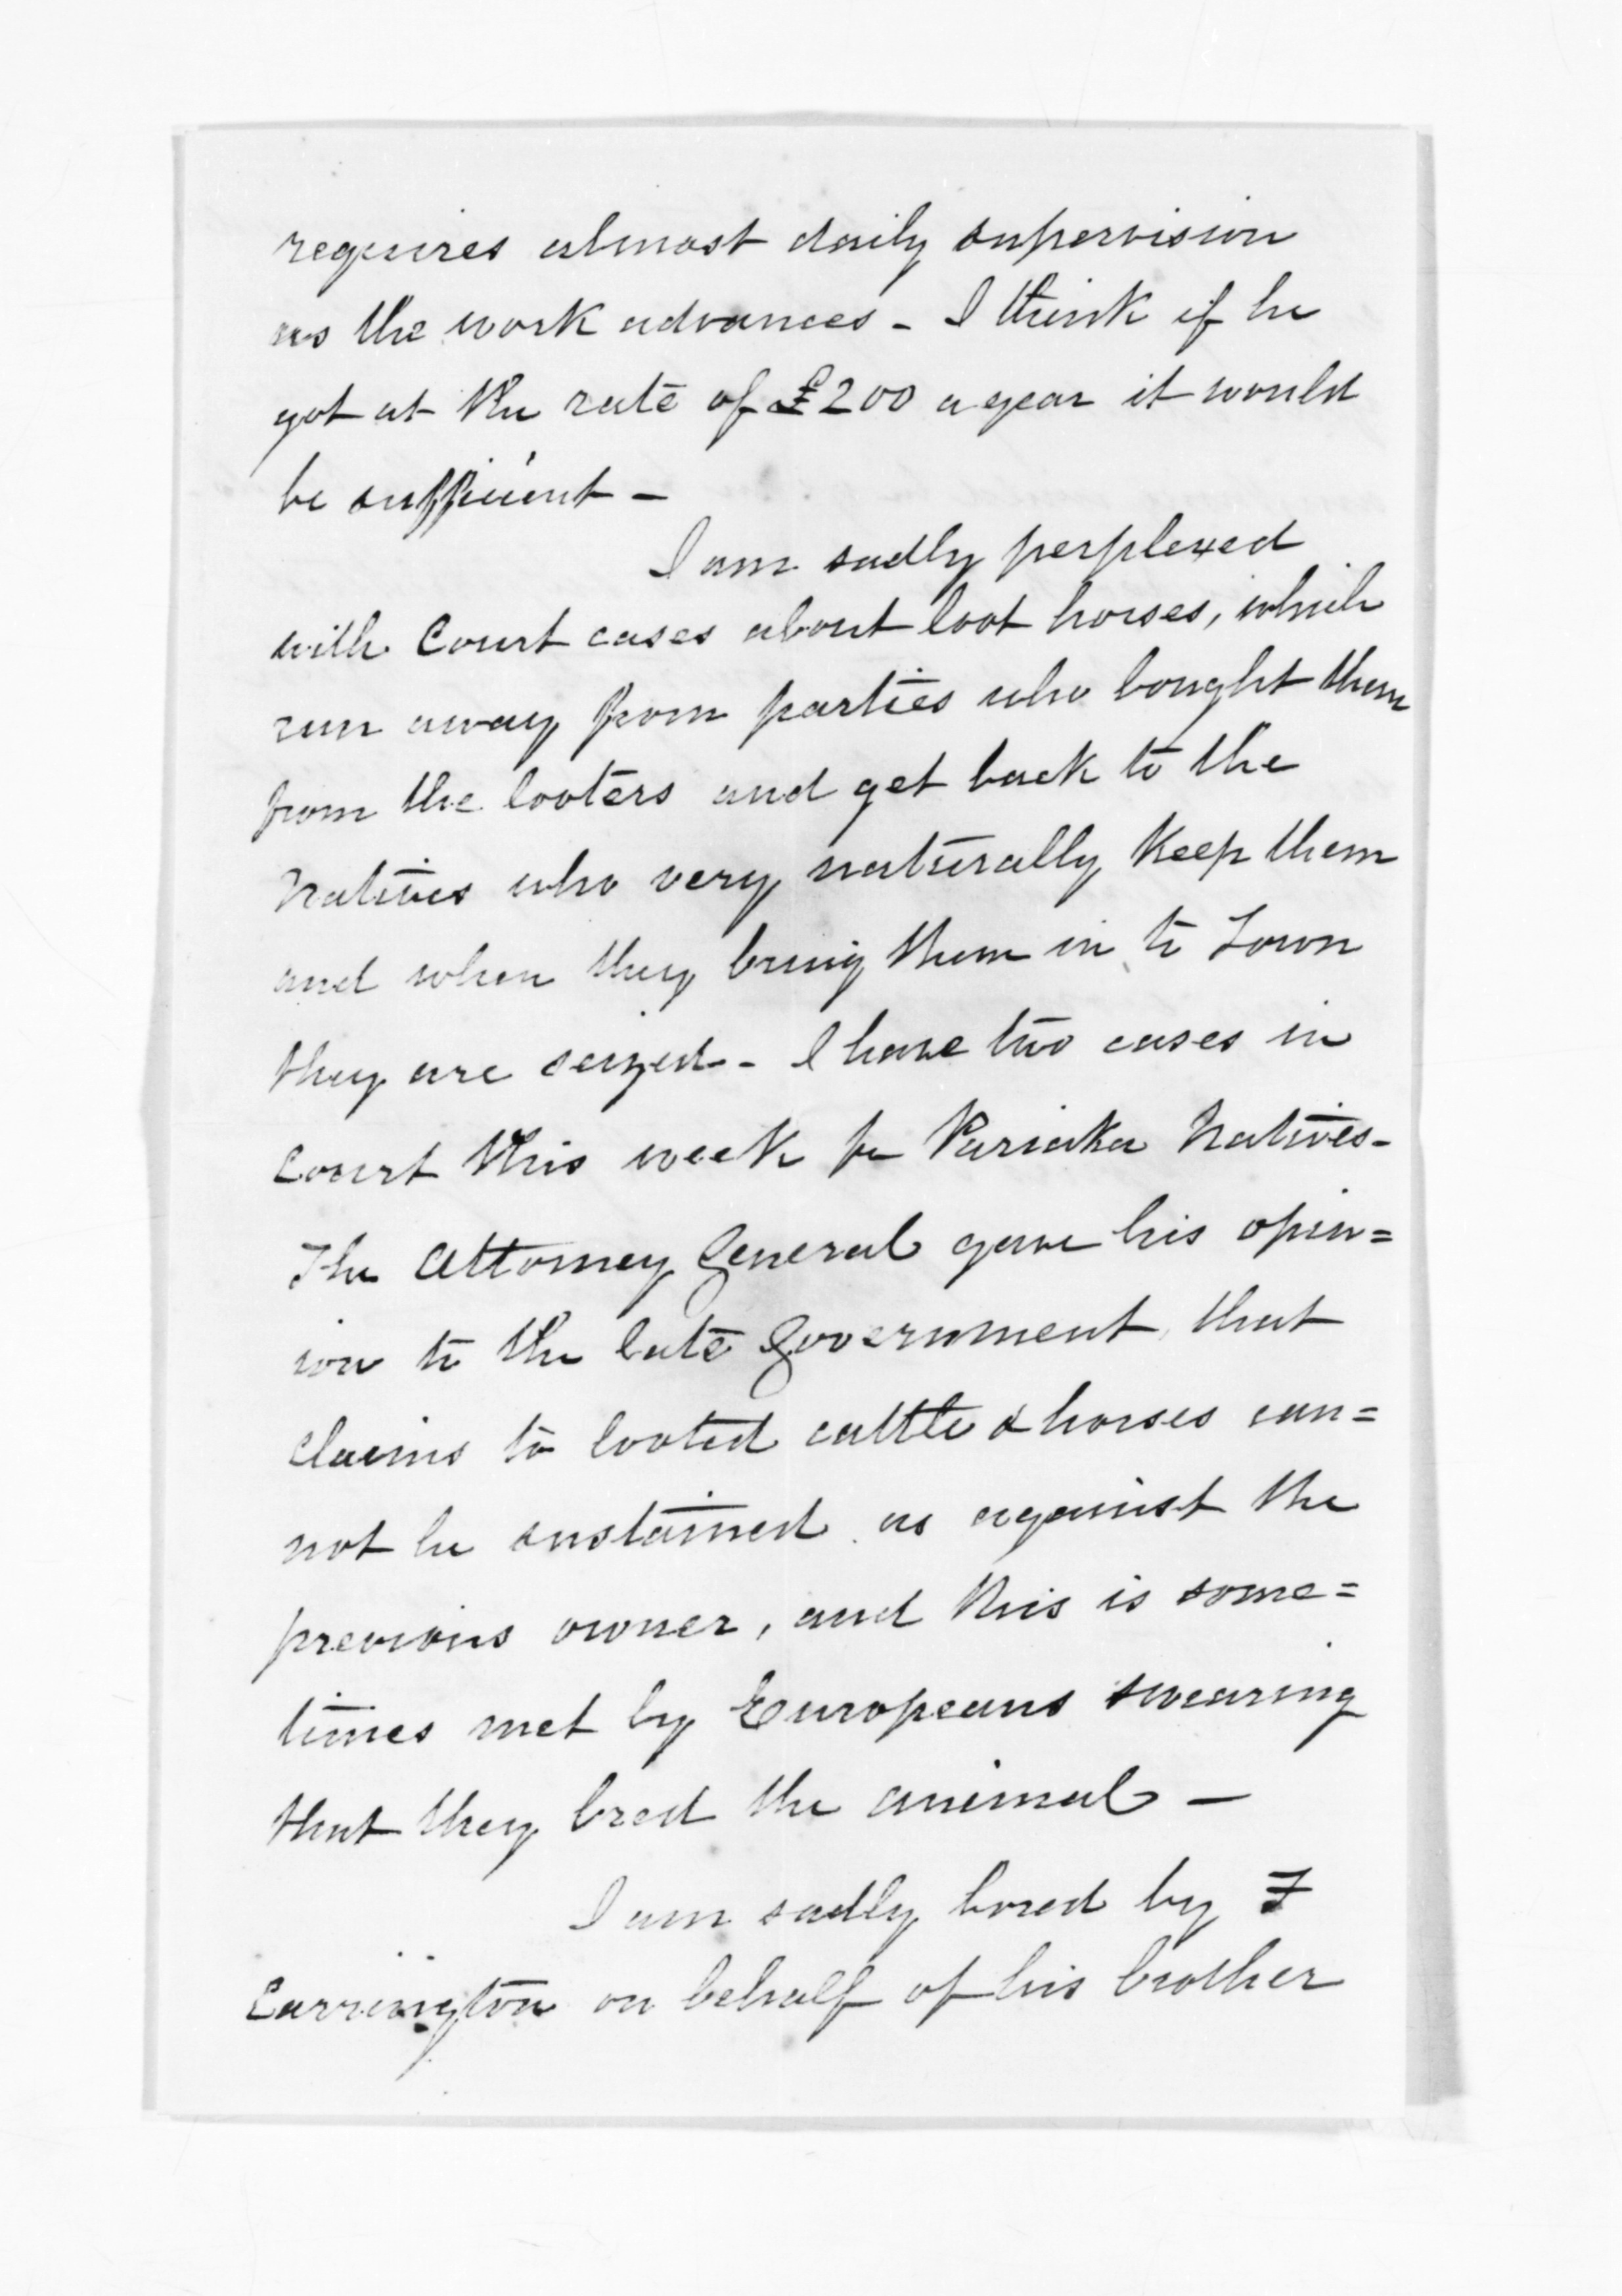 requires almost daily supervision
as the work advances - I think if he
got at the rate of £200 a year it would
be sufficient -
I am sadly perplexed
with Court cases about loot horses, which
run away from parties who bought them
from the looters and get back to the
Natives who very naturally keep them
and when they bring them in to Town
they are seized - I have two cases in
Court this week for Pariaka Natives -
The Attorney General gave his opin=
ion to the late Government, that
claims to looted cattle & horses can=
not be sustained as against the
previous owner, and this is some=
times met by Europeans swearing
that they bred the animal -
I am sadly bored by F
Carrington on behalf of his brother